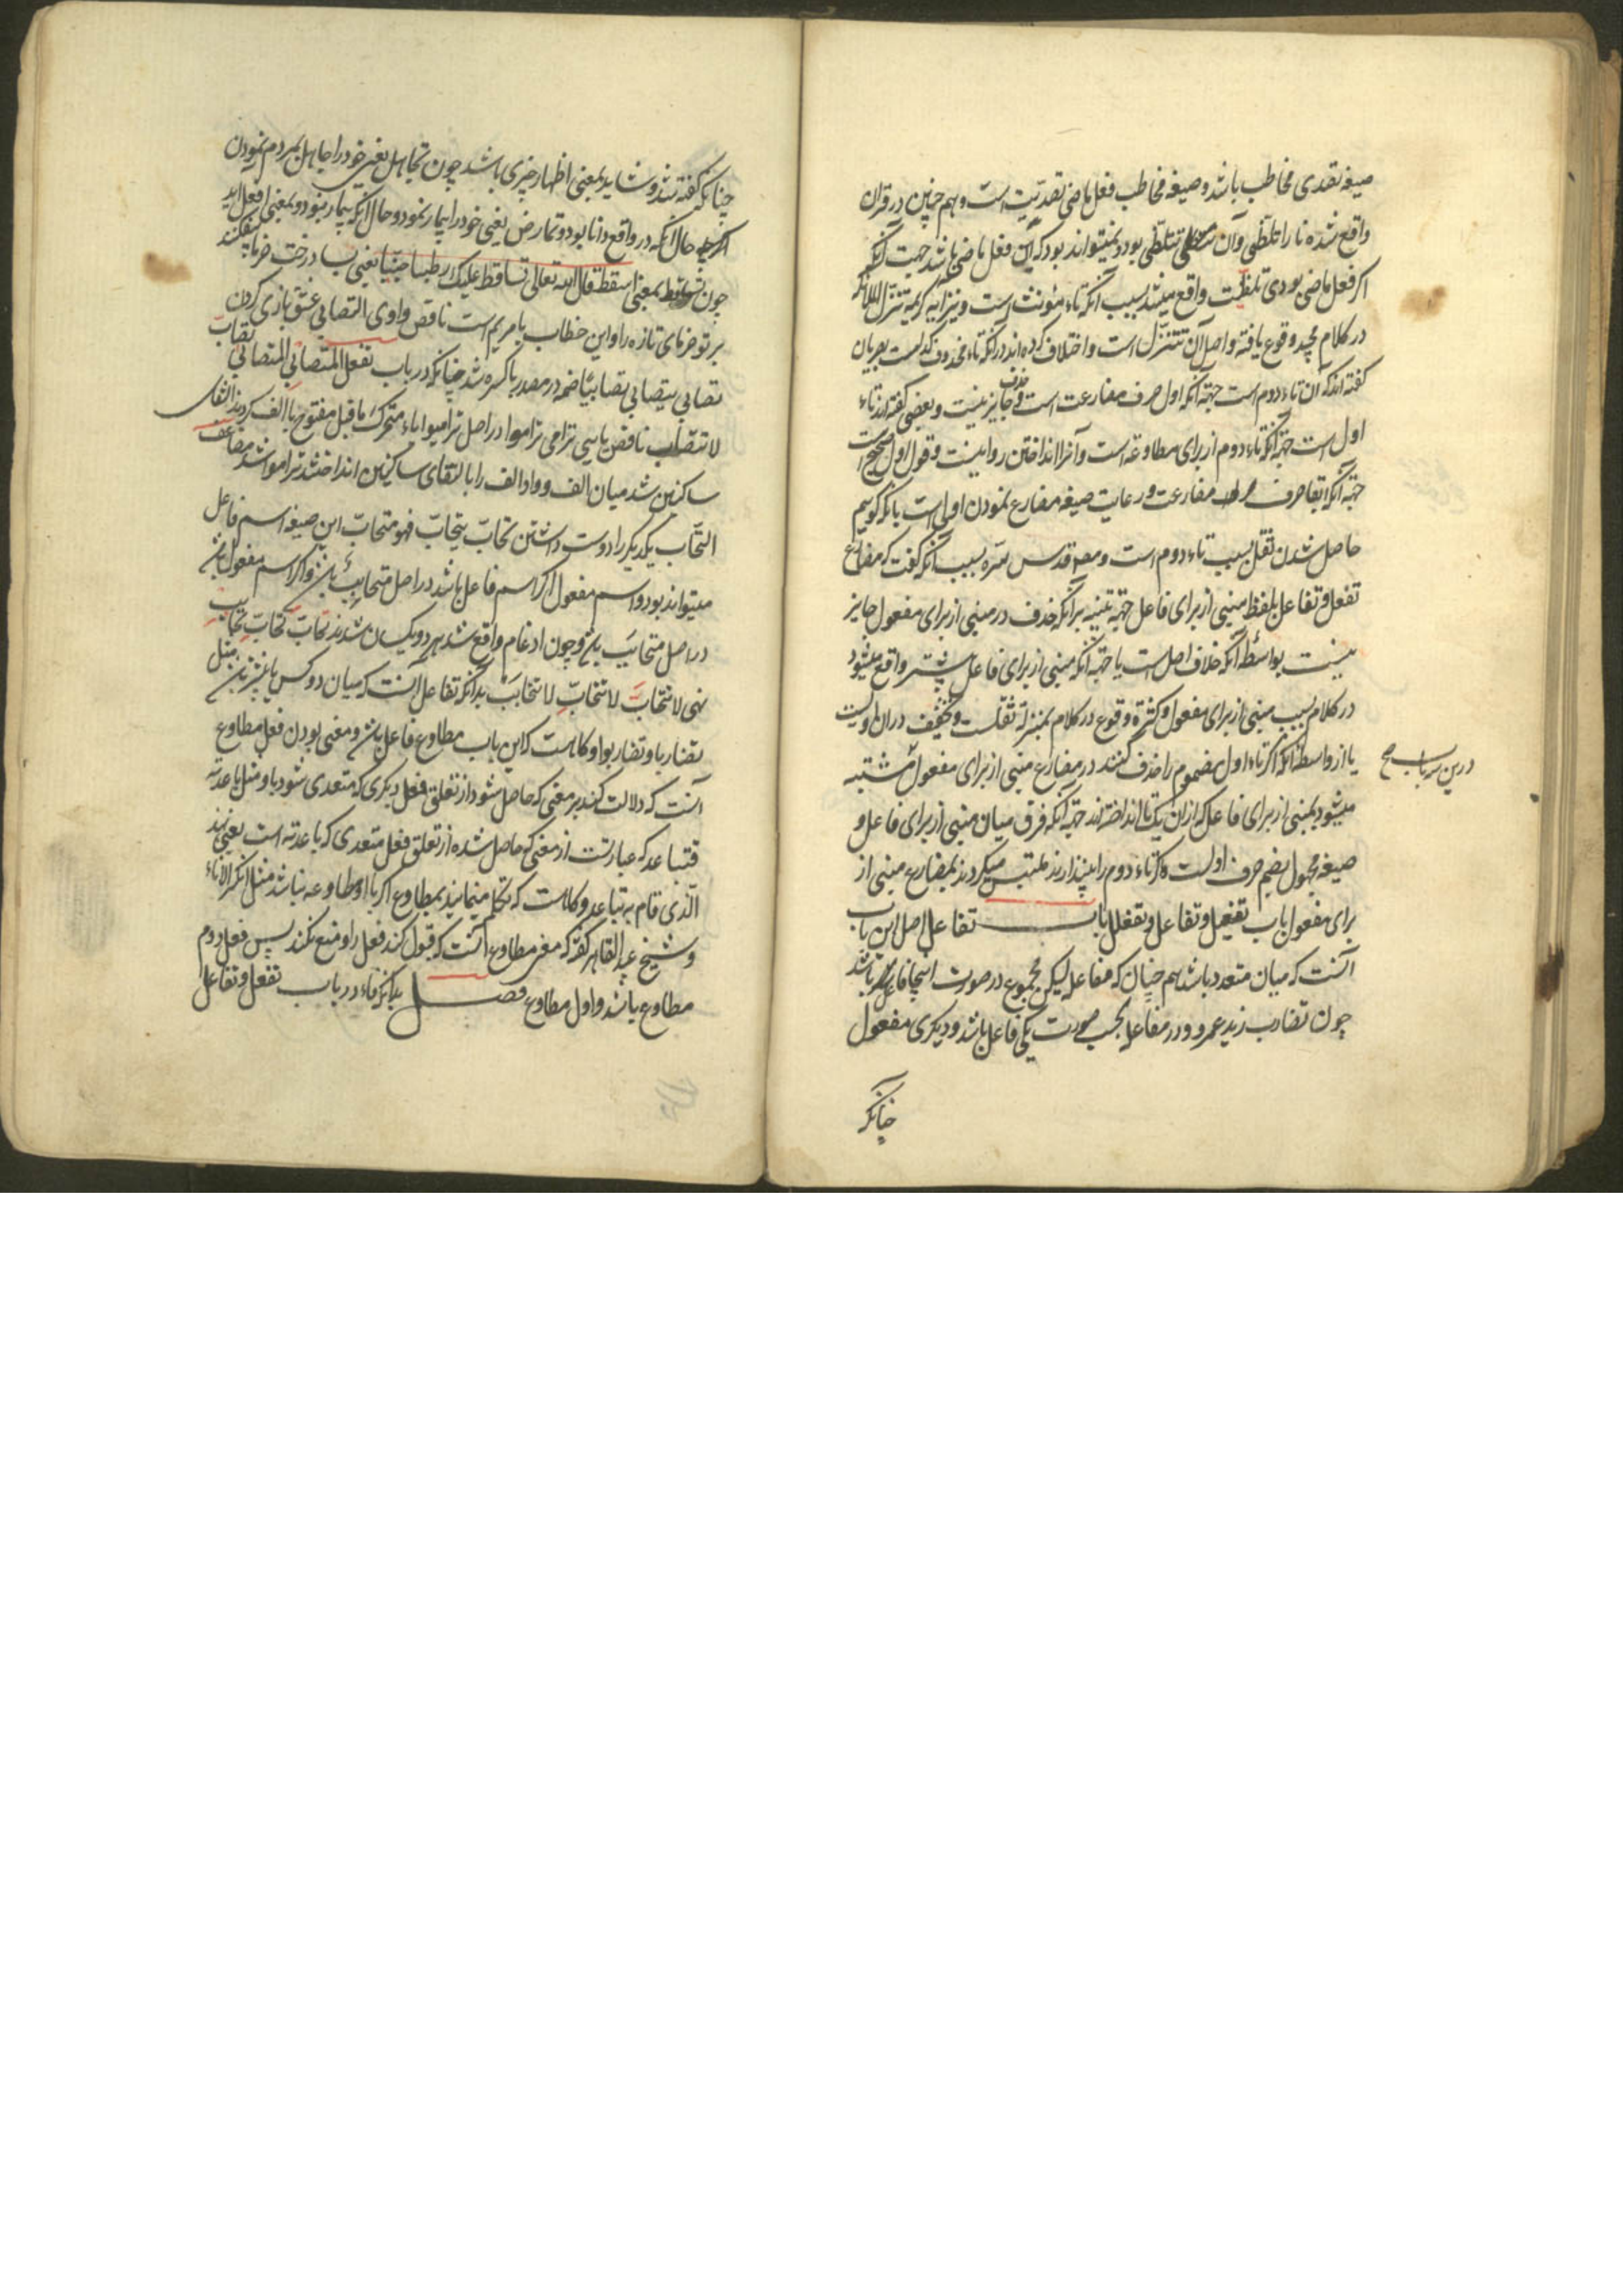 صیغه تقدی مخاطب باشد و صیغه مخاطب فعل ماضی تقدیت است و هم چنین در قران
واقع شده نارا تلظی و آن تتلظی بود و نمیتواند بود که این فعل ماضی باشد جهت آنکه
اگر فعل ماضی بودی تلظت واقع میشد بسبب آنکه تاء مؤنث است و نیز آیه کریمه تنزل الملائکه
در کلام مجید وقوع یافته و اصل آن تتنزل است و اختلاف کرده‌اند در آنکه تاء محذوف کدامست بصریان
گفته‌اند که آن تاء دوم است جهة آنکه اول حرف مضارعت است و حذف جایز نیست و بعضی گفته‌اند تاء
اول است جهة آنکه تاء دوم از برای مطاوعه است و آنرا انداختن روا نیست و قول اول صحیح است
جهة آنکه ابقا حرف مضارعت و رعایت صیغه مضارع نمودن اولی است بانکه گوییم
حاصل شدن ثقل بسبب تاء دوم است و مص قدس سره بسبب آنکه گفت که مضارع
تفعل و تفاعل بلفظ مبنی از برای فاعل جهة تنبیه برآنکه حذف در مبنی از برای مفعول جایز
نیست بواسطه آنکه خلاف اصل است یا جهة آنکه مبنی از برای فاعل بیشتر واقع میشود
در کلام بسبب مبنی از برای مفعول و کثرة وقوع در کلام بمنزلة ثقلست و تخفیف در ان اولیست
یا از واسطه آنکه اگر تاء اول مضموم را حذف کنند در مضارع مبنی از برای مفعول مشتبه
میشود بمبنی از برای فاعل که ازان یک تا انداخته‌اند جهة آنکه فرق میان مبنی از برای فاعل و
صیغه مجهول بضم حرف اولست و اگر تاء دوم را بیندازند ملتبس میگردند بمضارع مبنی از
برای مفعول باب تفعیل و تفاعل و تفعلل باب تفاعل اصل این باب
آنست که میان متعدد باشد هم چنان که مفاعله لیکن مجموع در صورت اینجا فاعل باشد
چون تضارب زید عمرو و در مفاعله بحسب صورت یکی فاعل باشد و دیگری مفعول
چنانکه
درین سه باب صح
چنانکه گفته شد و شاید بمعنی اظهار چیزی باشد چون تجاهل یعنی خود را جاهل بمردم نمودن
اگرچه حال آنکه در واقع دانا بود و تمارض یعنی خود را بیمار نمود و حال آنکه بیمار نبود و بمعنی افعل آید
چون تساقط بمعنی اسقط قال الله تعالی تساقط علیک رطبا جنیا یعنی بسا درخت خرما بیفکند
بر تو خرمای تازه را و این خطاب با مریم است ناقص واوی التصابی عشق بازی کردن
تصابی یتصابی تصابیا ضمه در مصدر با کسره شد چنانکه در باب تفعل المتصابی المتصابی تصاب
لا تتصاب ناقص یایی ترامی تراموا در اصل ترامیوا یاء متحرک ما قبل مفتوح با الف کردند التقای
ساکنین شد میان الف و واو الف را بالتقای ساکنین انداختند تراموا شد مضاعف
التحاب یکدیگر را دوست داشتن تحاب یتحاب فهو متحاب این صیغه اسم فاعل
میتواند بود و اسم مفعول اگر اسم فاعل باشد در اصل متحابب باشد و اگر اسم مفعول باشد
در اصل متحابب باشد و چون ادغام واقع شد هر دو یکسان شدند تحاب تحاب تحابب
نهی لا تتحاب لا تتحاب لا تتحابب بدانکه تفاعل آنست که میان دو کس یا بیشتر باشد مثل
تضاربا و تضاربوا و گاهست که این باب مطاوع فاعل باشد و معنی بودن فعل مطاوع
آنست که دلالت کند بر معنی که حاصل شود از تعلق فعل دیگری که متعدی شود باو مثل باعدته
فتباعد که عبارتست از معنی که حاصل شده از تعلق فعل متعدی که باعدته است یعنی
الذی قام به تباعد و گاهست که تکلم مینمایند بمطاوع اگر با او مطاوعه نباشد مثل انکسر الاناء
و شیخ عبد القاهر گفته که معنی مطاوع آنست که قبول کند فعل را و منع نکند پس فعل دوم
مطاوع باشد و اول مطاوع فصل بدانکه فاء در باب تفعل و تفاعل